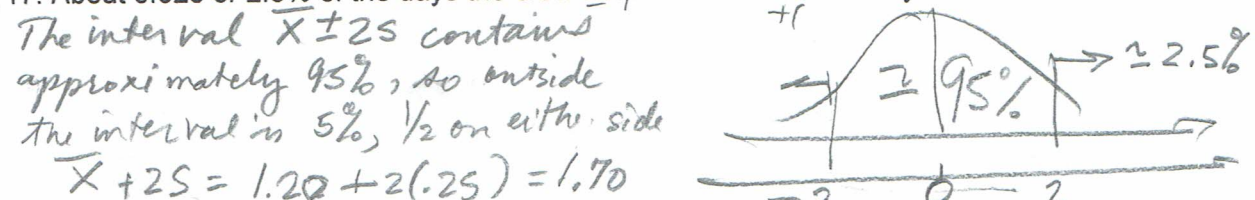 The interval X̄ ± 2S contains
approximately 95%, so outside
the interval is 5%, 1/2 on either side
X̄ + 2S = 1.20 + 2(.25) = 1.70
+1
≃ 95%
→ ≃ 2.5%
-2 0 2